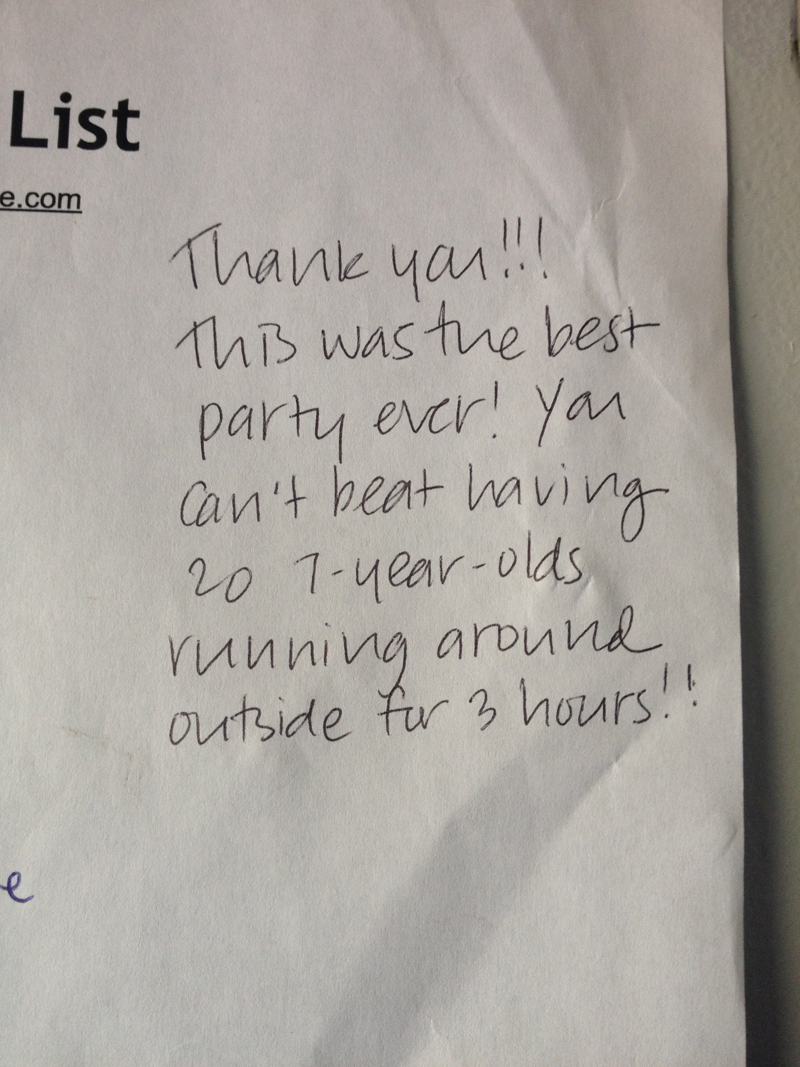 List
e.com
Thank you!!!
This was the best
party ever! You
can't beat having
20 7-year-olds
running around
outside for 3 hours!!
e